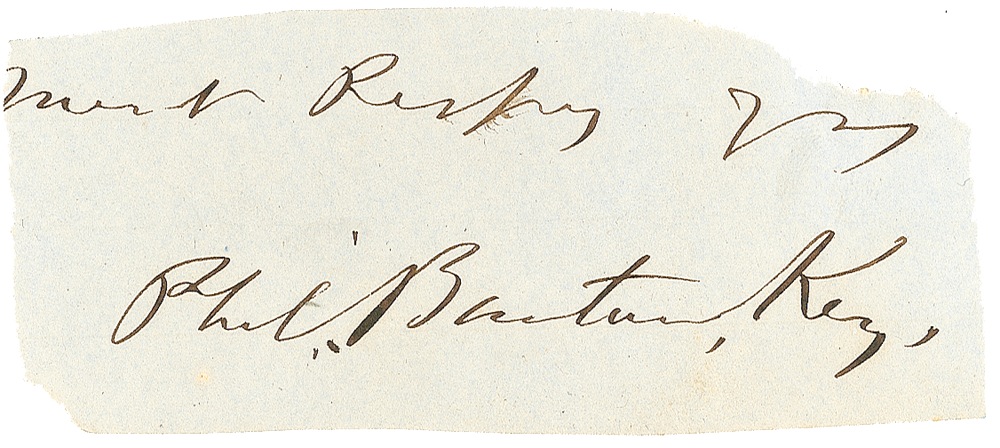 Most Respy Yrs
Phil. Barton, Key,